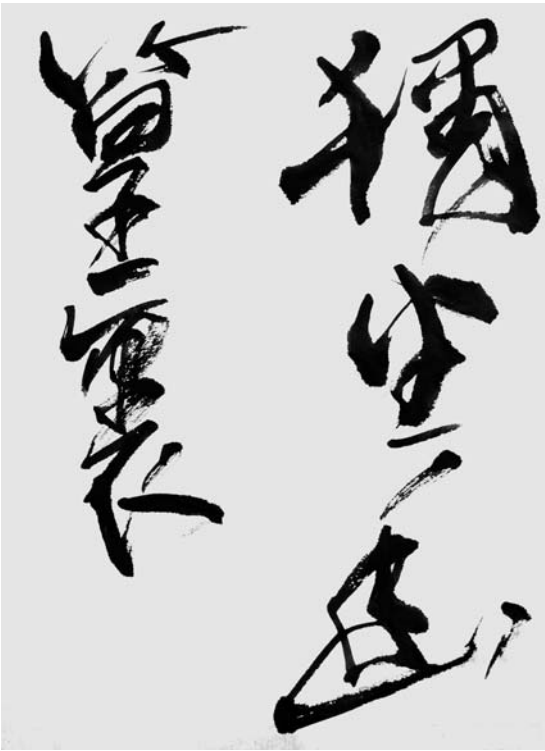 獨坐幽
篁裏